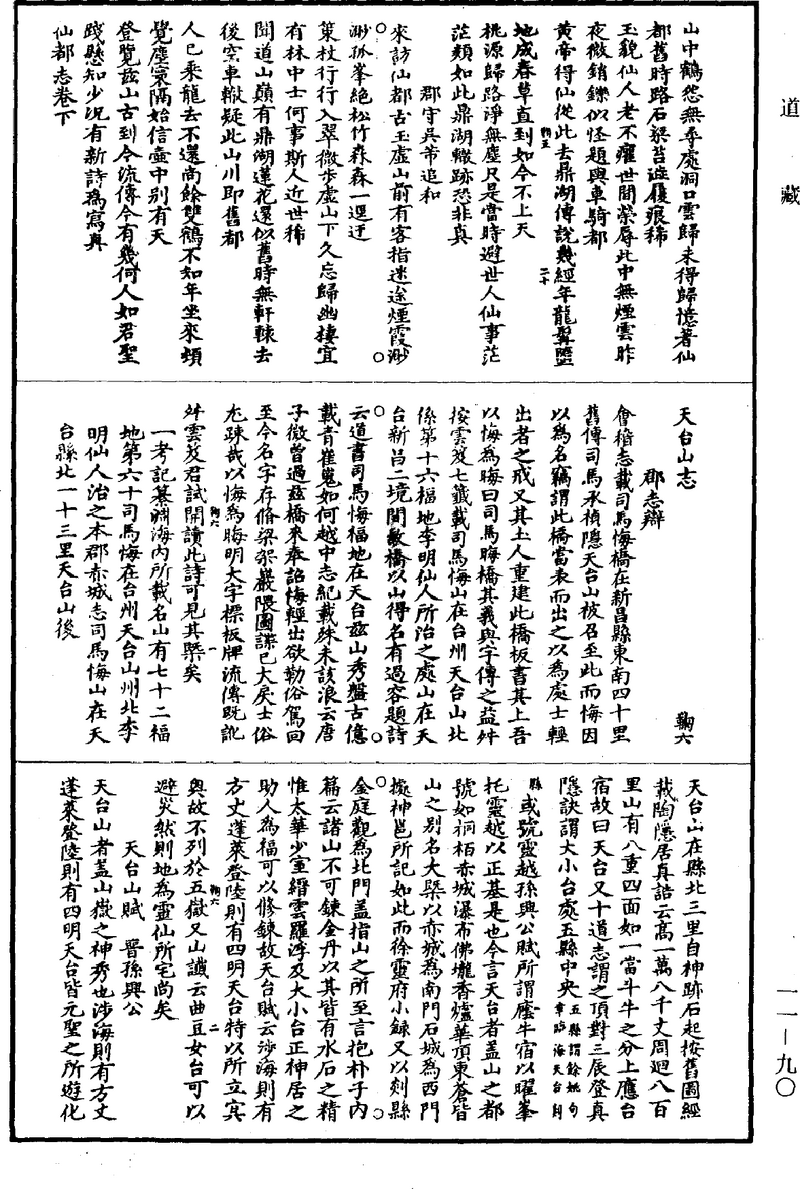 道藏
山中鶴怨無尋處洞口雲歸未得歸憶著仙
都舊時路石梁苔滋履痕稀
玉貌仙人老不癯世間榮辱此中無煙雲昨
夜微銷鑠似怪題輿車騎都
黃帝得仙從此去鼎湖傳說幾經年龍髯墮
地成春草直到如今不上天
桃源歸路淨無塵只是當時避世人仙事茫
茫類如此鼎湖轍跡恐非真
郡守吳芾追和
來訪仙都古玉虛山前有客指迷途煙霞渺
渺孤峯絕松竹森森一逕迂
策杖行行入翠微步虛山下久忘歸幽棲宜
有林中士何事斯人近世稀
聞道山巔有鼎湖蓮花還似舊時無軒轅去
後空車轍疑此山川即舊都
人已乘龍去不還尚餘雙鶴不知年坐來頓
覺塵寰隔始信壺中別有天
登覽茲山古到今流傳今有幾何人如君聖
踐懸知少況有新詩為寫真
仙都志卷下
天台山志
鞠六
郡志辯
會稽志載司馬悔橋在新昌縣東南四十里
舊傳司馬承禎隱天台山被召至此而悔因
以為名竊謂此橋當表而出之以為處士輕
出者之戒又其土人重建此橋板書其上吾
以悔為晦曰司馬晦橋其義與字傳之益舛
按雲笈七籤載司馬悔山在台州天台山北
係第十六福地李明仙人所治之處山在天
台新昌二境間敏橋以山得名有過客題詩
云道書司馬悔福地在天台茲山秀盤古億
載青崔嵬如何越中志紀載殊未該浪云唐
子微曾過茲橋來奉詔悔輕出欲勒俗駕回
至今名字存脩梁架巖隈圖諜已大戾士俗
尤踈哉以悔為晦明大字標板牌流傳既訛
舛雲笈君試開讀此詩可見其槩矣
一考記纂淵海內所載名山有七十二福
地第六十司馬悔在台州天台山州北李
明仙人治之本郡赤城志司馬悔山在天
台縣北一十三里天台山後
天台山在縣北三里自神跡石起按舊圖經
載陶隱居真誥云高一萬八千丈周迴八百
里山有八重四面如一當斗牛之分上應台
宿故曰天台又十道志謂之頂對三辰登真
隱訣謂大小台處五縣中央五縣謂餘姚句章臨海天台剡
縣或號靈越孫興公賦所謂䕃牛宿以曜峯
托靈越以正基是也今言天台者蓋山之都
號如桐栢赤城瀑布佛壠香爐華頂東蒼皆
山之別名大槩以赤城為南門石城為西門
據神邕所記如此而徐靈府小錄又以剡縣
金庭觀為北門蓋指山之所至言抱朴子內
篇云諸山不可鍊金丹以其皆有水石之精
惟太華少室縉雲羅浮及大小台正神居之
助人為福可以修鍊故天台賦云涉海則有
方丈蓬萊登陸則有四明天台特以所立冥
奧故不列於五嶽又山讖云曲豆女台可以
避災然則地為靈仙所宅尚矣
天台山賦　晉孫興公
天台山者蓋山嶽之神秀也涉海則有方丈
蓬萊登陸則有四明天台皆元聖之所遊化
一一－九〇